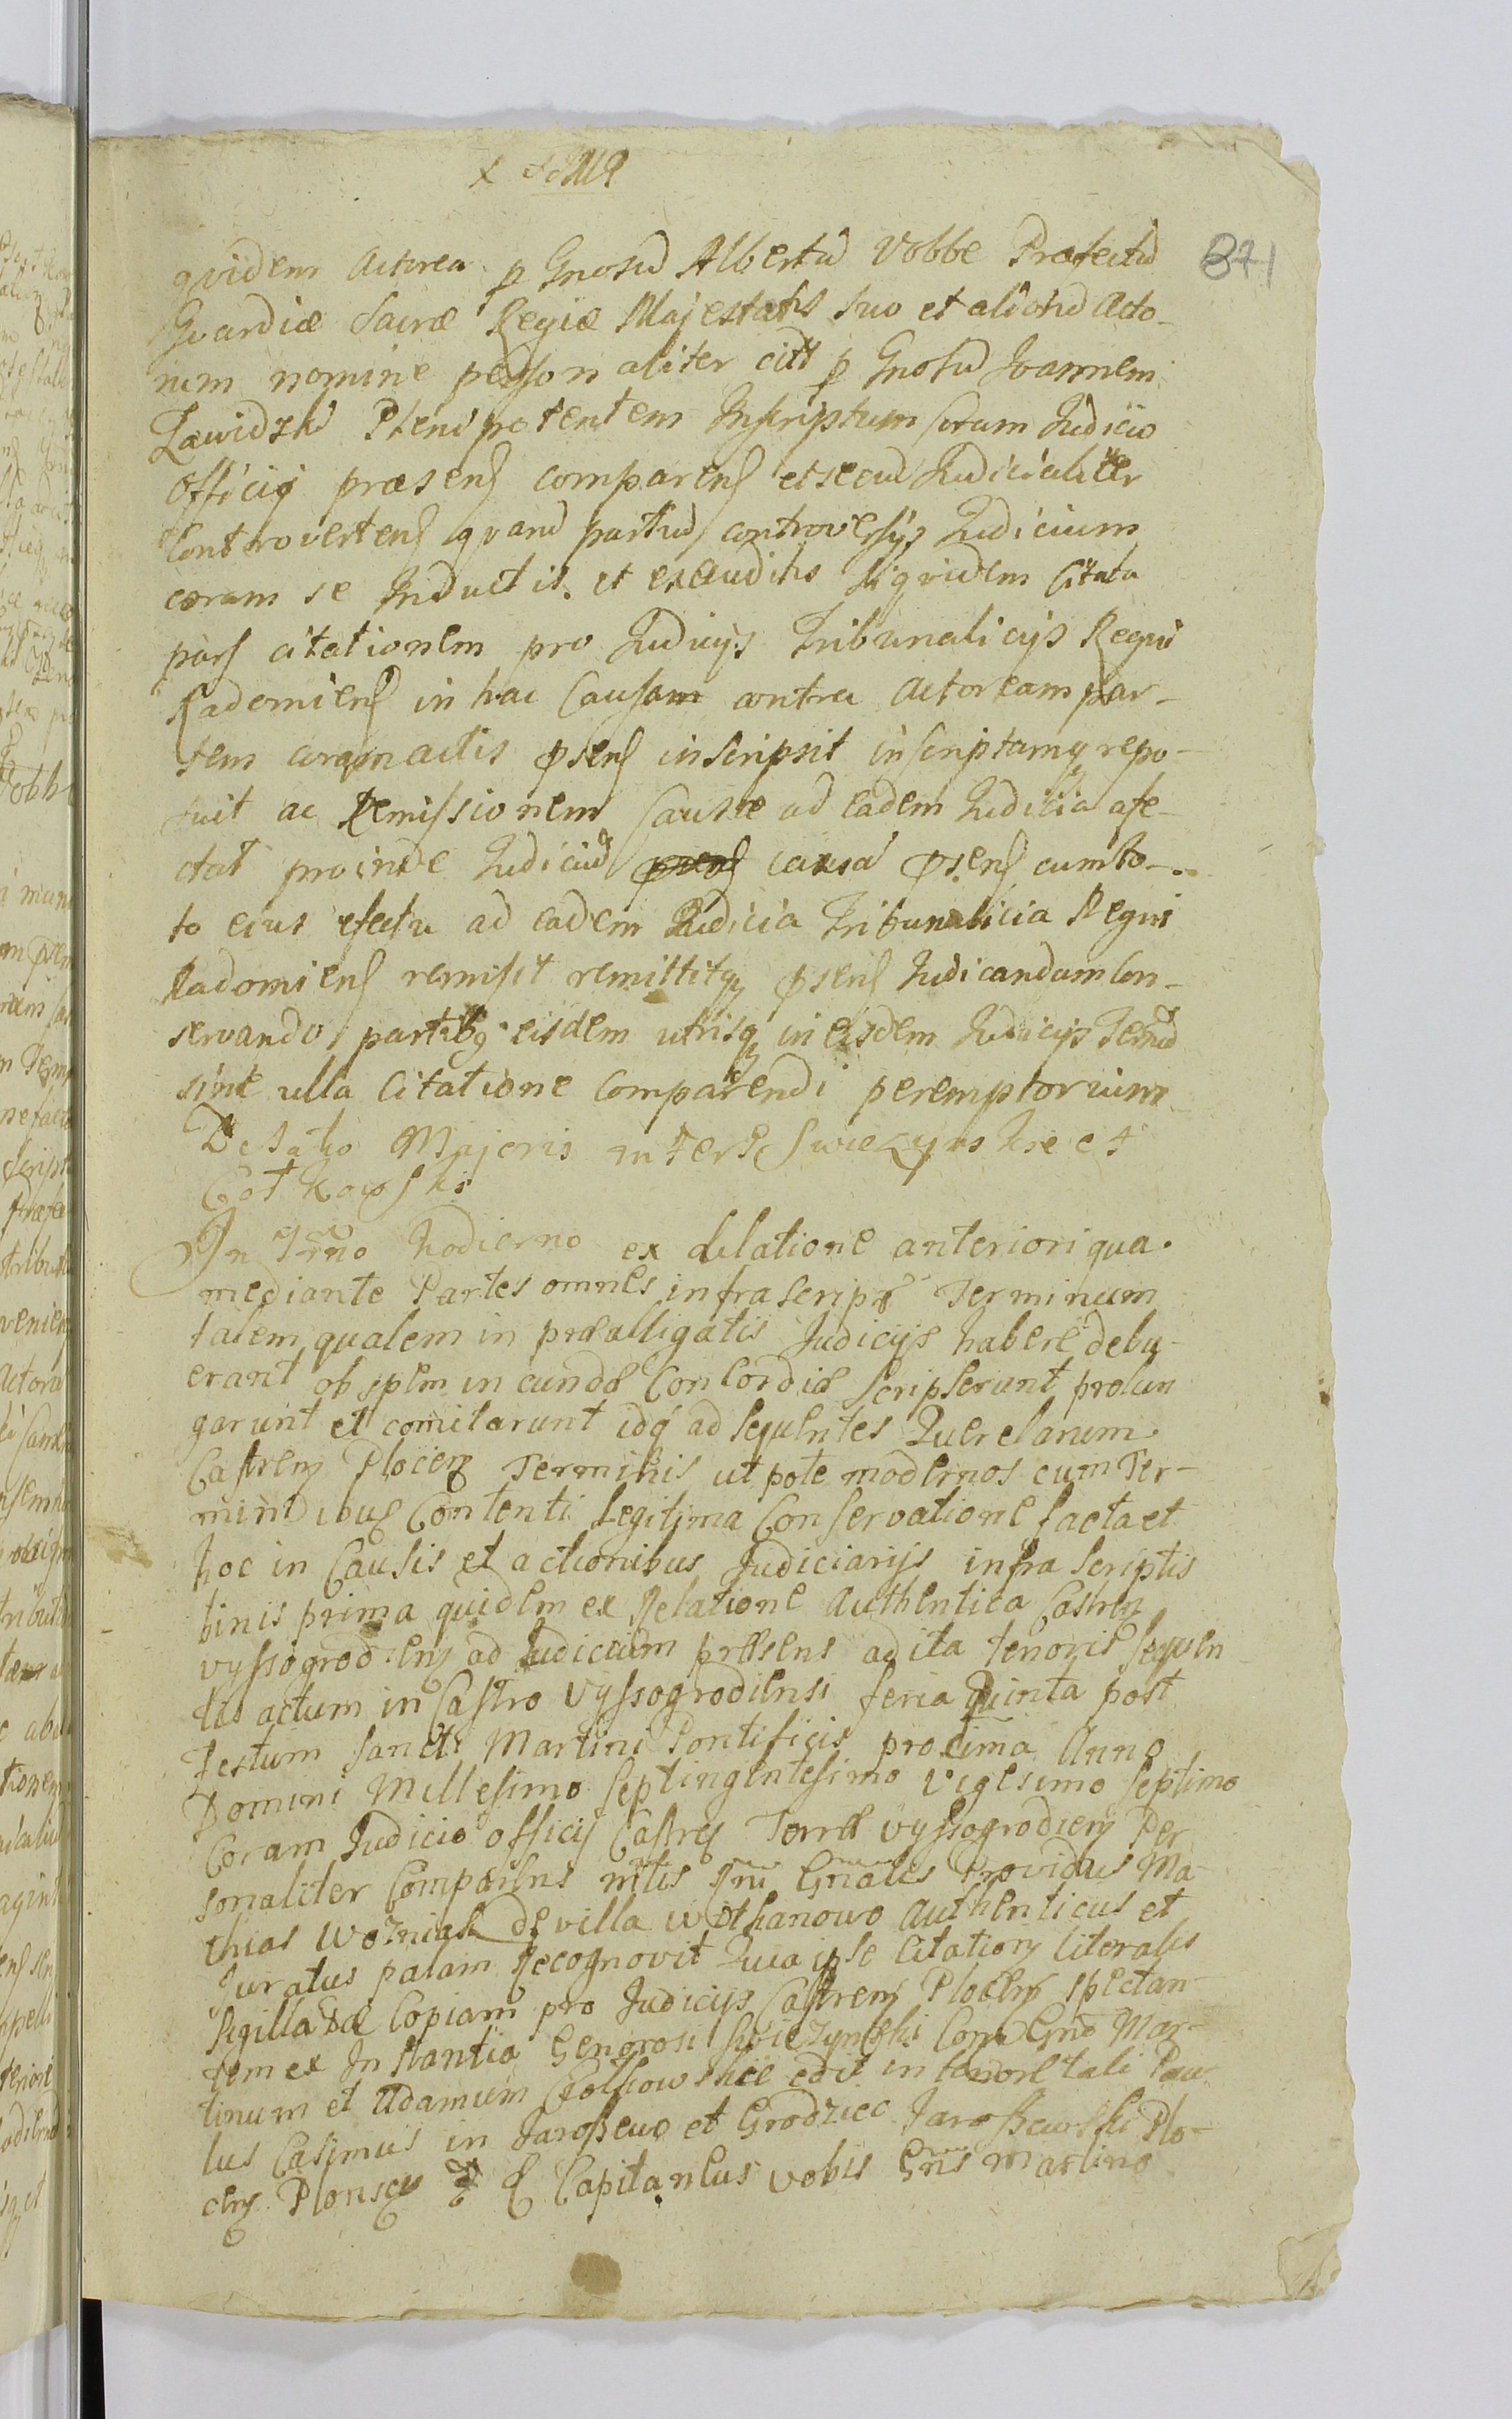 871
quidem Actorea p Gnosũ Albertũ Vobbe Præfectũ
Gvardiæ Sacræ Regiæ Majestatis suo et aliorũ Acto-
rum nomine personaliter citt p Gnosũ Joannem
Zawidzki Plenipotentem Inscriptum coram Judicio
Officii præsenſ comparenſ et secũ Judicialiter
Controvertenſ quarũ partiũ controversijs Judicium
coram se Inductis et exauditis siquidem Citata
parſ citationem pro Judicijs Tribunalicijs Regni
Radomienſ in hac Causam contra Actoream par-
tem coram actis psenſ inscripsit inscriptamq repo-
suit ac Remissionem Causæ ad eadem Judicia afe-
ctat proinde Judiciũ causã psenſ cum to-
to eius efectu ad eadem Judicia Tribunalicia Regni
Radomienſ remisit remittitq psenſ Judicandam Con-
servando partibq eisdem utrisq in eisdem Judicijs Termũ
sine ulla Citatione Comparendi peremptorium
Dilatio Majoris inter Swiezynskie et
Cotkowski
In Trño hodierno ex dilatione anteriori qua
mediante Partes omnes infrascript Terminum
talem qualem in præalligatis Judicijs habere debu-
erant ob spem in eundæ Concordiæ scripserunt prolun
garunt et comitarunt idq ad sequentes Querelarum
Castrenſ Plocenſ Terminis utpote modernos cum Ter-
minis ibus Contenti Legitima Conservatione facta et
hoc in Causis et actionibus Judiciarijs infra scriptis
binis prima quidem ex Relatione Authentica Castrenſ
Vyssogrodienſ ad Judicium præsens adita tenoris sequen
tis actum in Castro Vyssogrodiensi feria Quinta post
Festum Sancti Martini Pontificis proxima Anno
Domini Millesimo Septingentesimo Vigesimo Septimo
Coram Judicio officij Castrenſ Terræ Vyssogrodienſ Per
sonaliter Comparens Gnalis Providus Ma-
thias Wozniak de villa Wothanowo Authenticus et
Juratus palam Recognovit Quia ipse Citationſ literalis
Sigillatæ Copiam pro Judicijs Castrenſ Plocenſ spectan-
tem ex Instantia Generosi Swiezynski Con Gnõ Mar-
tinum et Adamum Cotkowskie edit in tenore tali Pau-
lus Casimus in Jaroszewo et Grodziec Jaroszewski Plo-
cenſ Plonscenſ Capitaneus vobis Gñis Martino